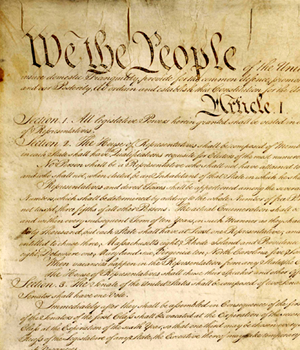 We the People of the Unit
insure domestic Tranquility, provide for the common defence, promo
and our Posterity, do ordain and establish this Constitution for the
Article. I.
Section. 1. All legislative Powers herein granted shall be vested in
of Representatives.
Section. 2. The House of Representatives shall be composed of Mem
in each State shall have the Qualifications requisite for Electors of the most numerous
No Person shall be a Representative who shall not have attained
and who shall not, when elected, be an Inhabitant of that State in which he
Representatives and direct Taxes shall be apportioned among the several
Numbers, which shall be determined by adding to the whole Number of free
not taxed, three fifths of all other Persons. The actual Enumeration shall
and within every subsequent Term of ten Years, in such Manner as
thirty Thousand, but each State shall have at Least one Representative; and
entitled to chuse three, Massachusetts eight, Rhode Island and Providence
eight, Delaware one, Maryland six, Virginia ten, North Carolina five,
When vacancies happen in the Representation from any State,
The House of Representatives shall chuse their Speaker and other
Section. 3. The Senate of the United States shall be composed of two
Senator shall have one Vote.
Immediately after they shall be assembled in Consequence of the
of the Senators of the first Class shall be vacated at the Expiration of the
Class at the Expiration of the sixth Year, so that one third may be chosen
Recess of the Legislature of any State, the Executive thereof may make temporary